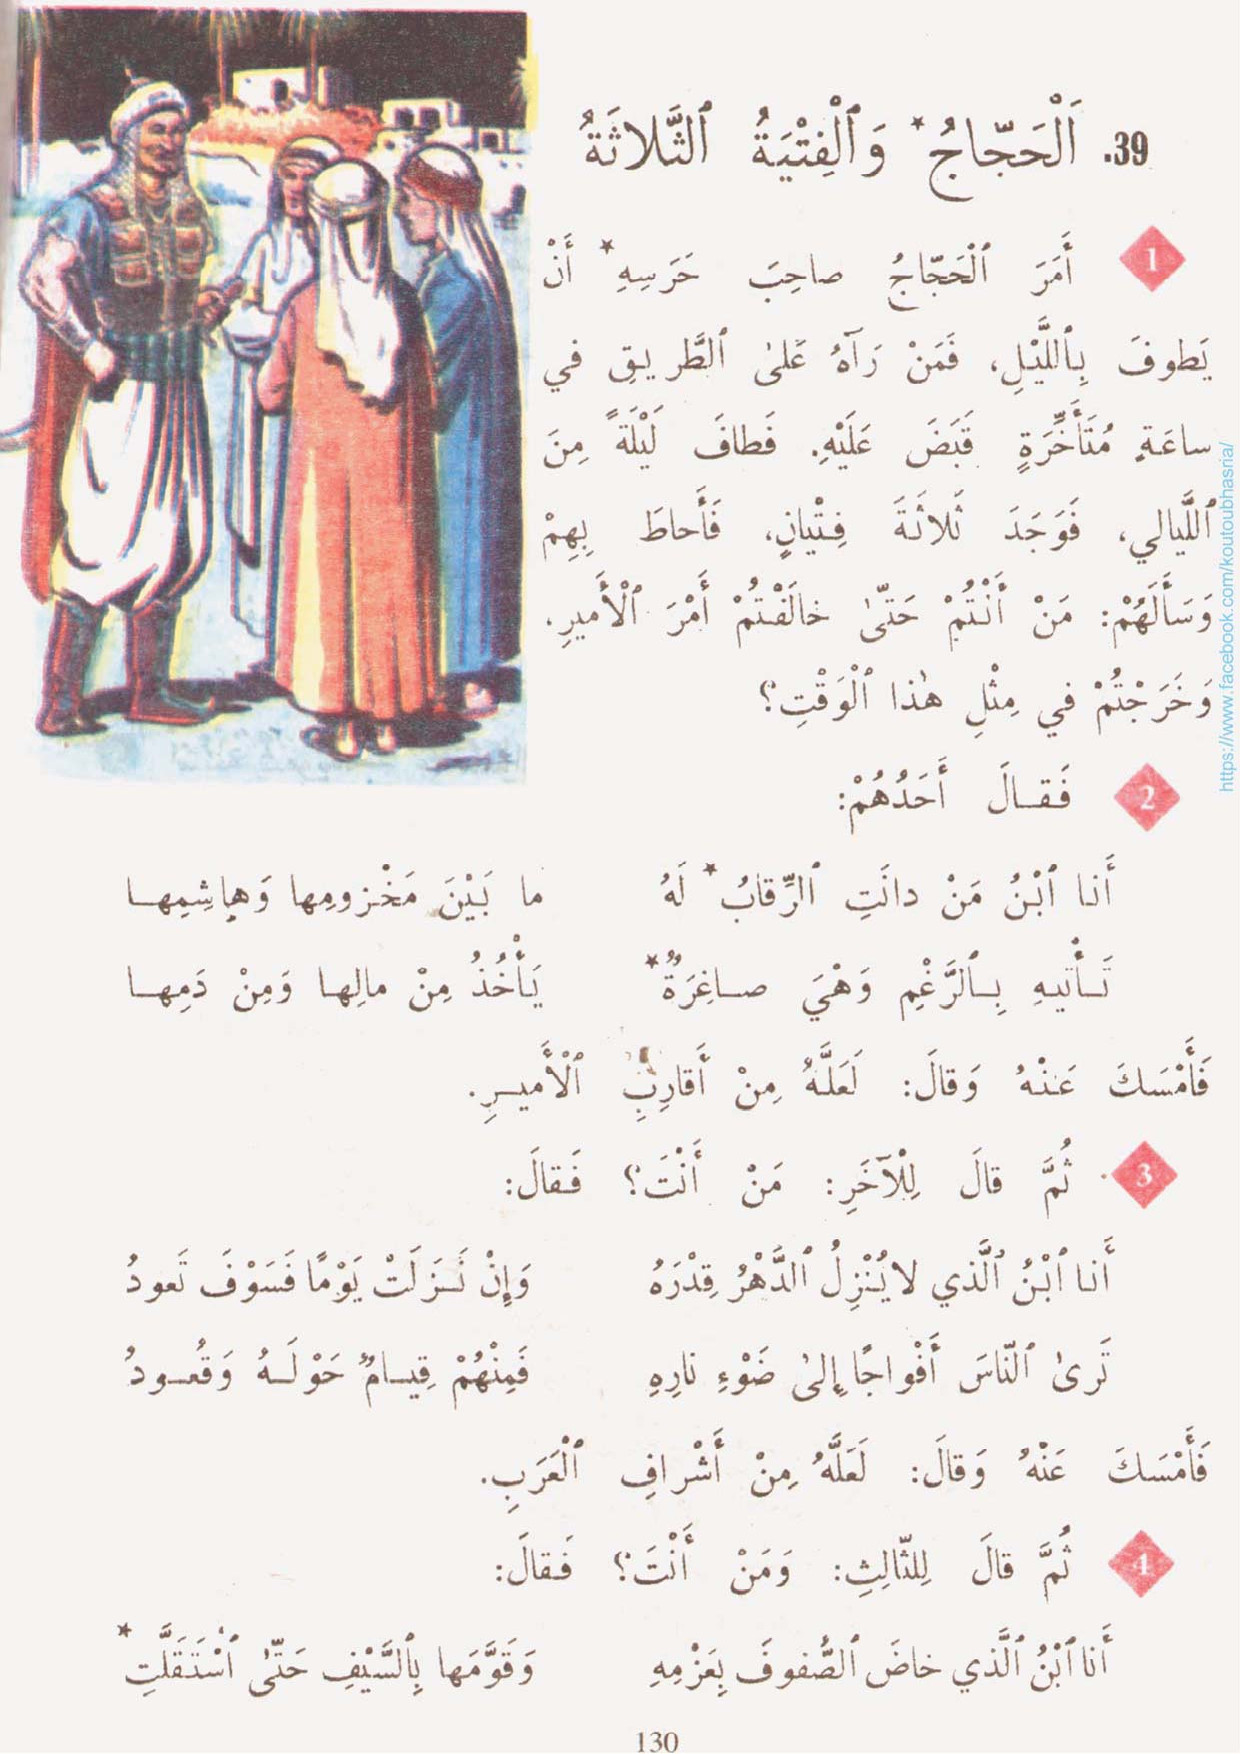 39. اَلْحَجّاجُ* وَٱلْفِتْيَةُ ٱلثَّلاثَةُ
1 أَمَرَ ٱلْحَجّاجُ صاحِبَ حَرَسِهِ* أَنْ
يَطوفَ بِٱللَّيْلِ، فَمَنْ رَآهُ عَلىٰ ٱلطَّريقِ في
ساعَةٍ مُتَأَخِّرَةٍ قَبَضَ عَلَيْهِ. فَطافَ لَيْلَةً مِنَ
ٱللَّيالي، فَوَجَدَ ثَلاثَةَ فِتْيانٍ، فَأَحاطَ بِهِمْ
وَسَأَلَهُمْ: مَنْ أَنْتُمْ حَتّىٰ خالَفْتُمْ أَمْرَ ٱلْأَميرِ،
وَخَرَجْتُمْ في مِثْلِ هٰذا ٱلْوَقْتِ؟
2 فَقالَ أَحَدُهُمْ:
أَنا ٱبْنُ مَنْ دانَتِ ٱلرِّقابُ* لَهُ ما بَيْنَ مَخْزومِها وَهاشِمِها
تَأْتيهِ بِٱلرَّغْمِ وَهْيَ صاغِرَةٌ* يَأْخُذُ مِنْ مالِها وَمِنْ دَمِها
فَأَمْسَكَ عَنْهُ وَقالَ: لَعَلَّهُ مِنْ أَقارِبِ ٱلْأَميرِ.
3 ثُمَّ قالَ لِلْآخَرِ: مَنْ أَنْتَ؟ فَقالَ:
أَنا ٱبْنُ ٱلَّذي لا يُنْزِلُ ٱلدَّهْرُ قِدْرَهُ وَإِنْ نَزَلَتْ يَوْمًا فَسَوْفَ تَعودُ
تَرىٰ ٱلنّاسَ أَفْواجًا إِلىٰ ضَوْءِ نارِهِ فَمِنْهُمْ قِيامٌ حَوْلَهُ وَقُعودُ
فَأَمْسَكَ عَنْهُ وَقالَ: لَعَلَّهُ مِنْ أَشْرافِ ٱلْعَرَبِ.
4 ثُمَّ قالَ لِلثّالِثِ: وَمَنْ أَنْتَ؟ فَقالَ:
أَنا ٱبْنُ ٱلَّذي خاضَ ٱلصُّفوفَ بِعَزْمِهِ وَقَوَّمَها بِٱلسَّيْفِ حَتّىٰ ٱسْتَقَلَّتِ*
130
https://www.facebook.com/koutoubhasria/